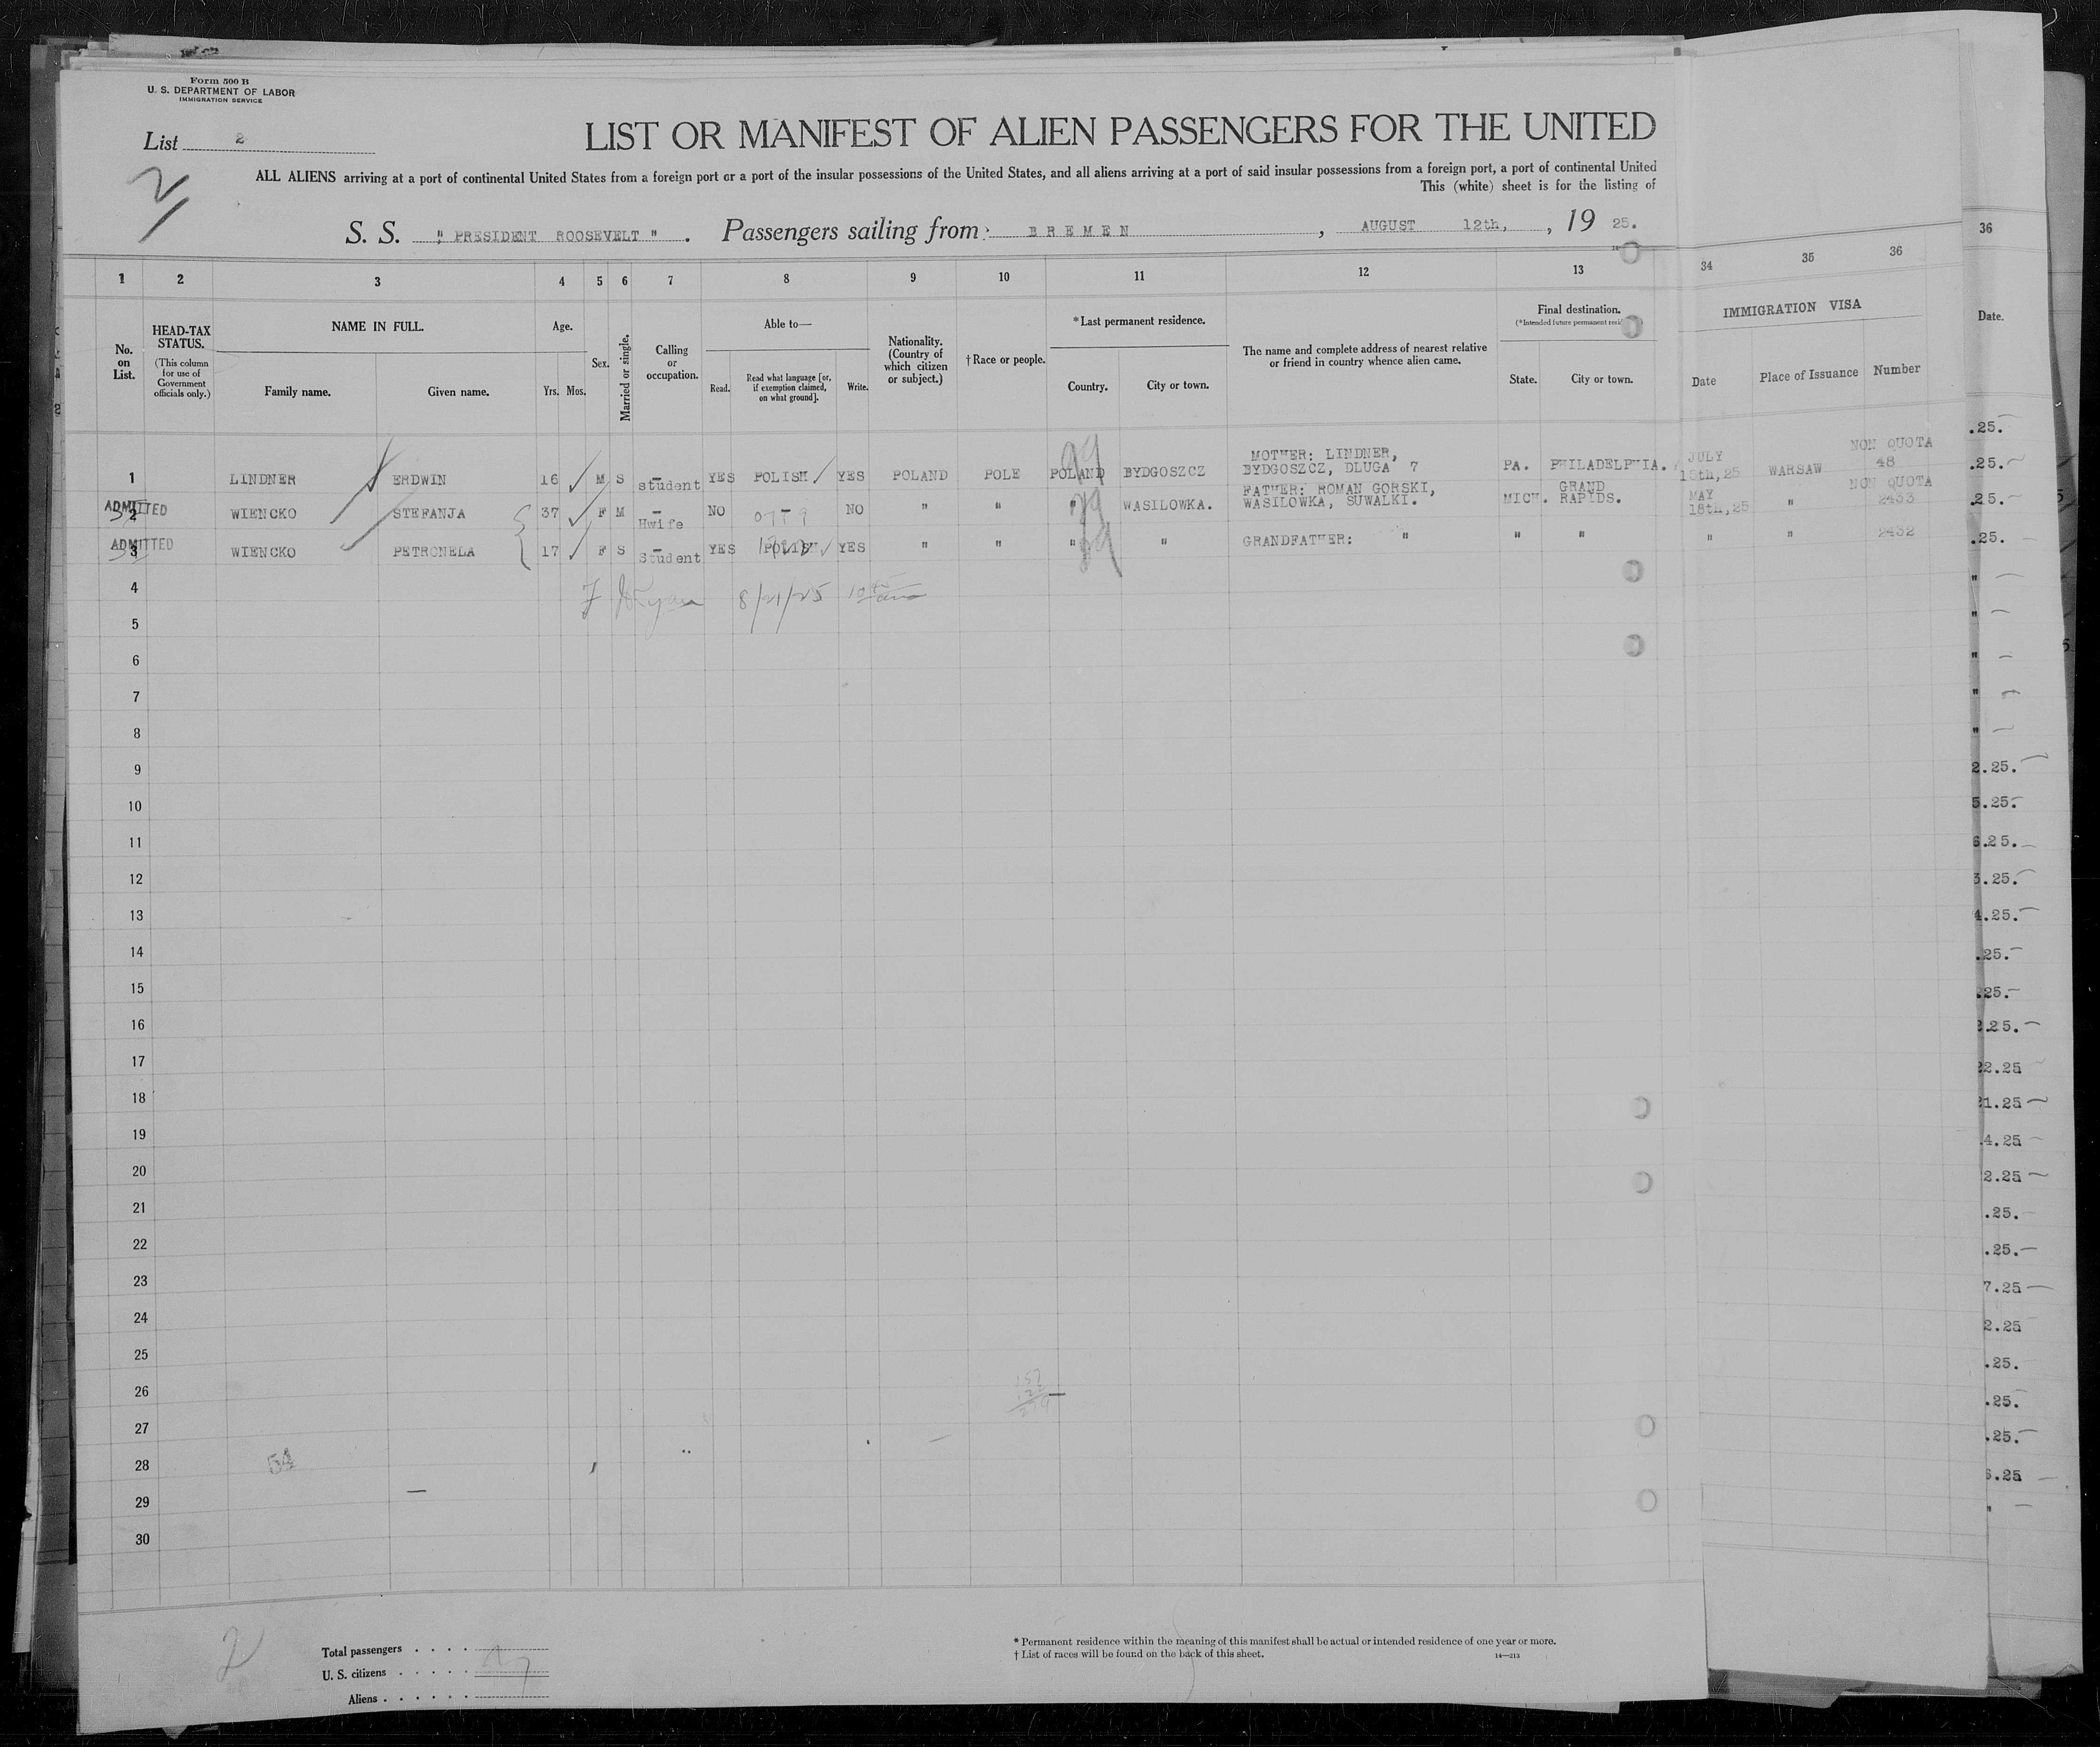 Form 500 B
U. S. DEPARTMENT OF LABOR
IMMIGRATION SERVICE
List 2
LIST OR MANIFEST OF ALIEN PASSENGERS FOR THE UNITED
ALL ALIENS arriving at a port of continental United States from a foreign port or a port of the insular possessions of the United States, and all aliens arriving at a port of said insular possessions from a foreign port, a port of continental United
This (white) sheet is for the listing of
S. S. "PRESIDENT ROOSEVELT". Passengers sailing from BREMEN, AUGUST 12th, , 19 25.
1 2 3 4 5 6 7 8 9 10 11 12 13 34 35 36 36
No. on List.
HEAD-TAX STATUS.
(This column for use of Government officials only.)
NAME IN FULL.
Family name. Given name.
Age.
Yrs. Mos.
Sex.
Married or single.
Calling or occupation.
Able to—
Read. Read what language [or, if exemption claimed, on what ground]. Write.
Nationality. (Country of which citizen or subject.)
†Race or people.
*Last permanent residence.
Country. City or town.
The name and complete address of nearest relative or friend in country whence alien came.
Final destination.
(*Intended future permanent
State. City or town.
IMMIGRATION VISA
Date Place of Issuance Number
Date.
1 LINDNER ERDWIN 16 M S student YES POLISH YES POLAND POLE POLAND BYDGOSZCZ MOTHER: LINDNER, BYDGOSZCZ, DLUGA 7 PA. PHILADELPHIA. JULY 15th,25 WARSAW NON QUOTA 48
ADMITTED 2 WIENCKO STEFANJA 37 F M Hwife NO — NO " " " WASILOWKA. FATHER: ROMAN GORSKI, WASILOWKA, SUWALKI. MICH. GRAND RAPIDS. MAY 18th,25 " NON QUOTA 2433
ADMITTED 3 WIENCKO PETRONELA 17 F S Student YES POLISH YES " " " " GRANDFATHER: " " " " " 2432
8/21/25 10
4
5
6
7
8
9
10
11
12
13
14
15
16
17
18
19
20
21
22
23
24
25
26
27
28
54
29
30
2
Total passengers . . . .
U. S. citizens . . . . .
Aliens . . . . . .
* Permanent residence within the meaning of this manifest shall be actual or intended residence of one year or more.
† List of races will be found on the back of this sheet.
14—213